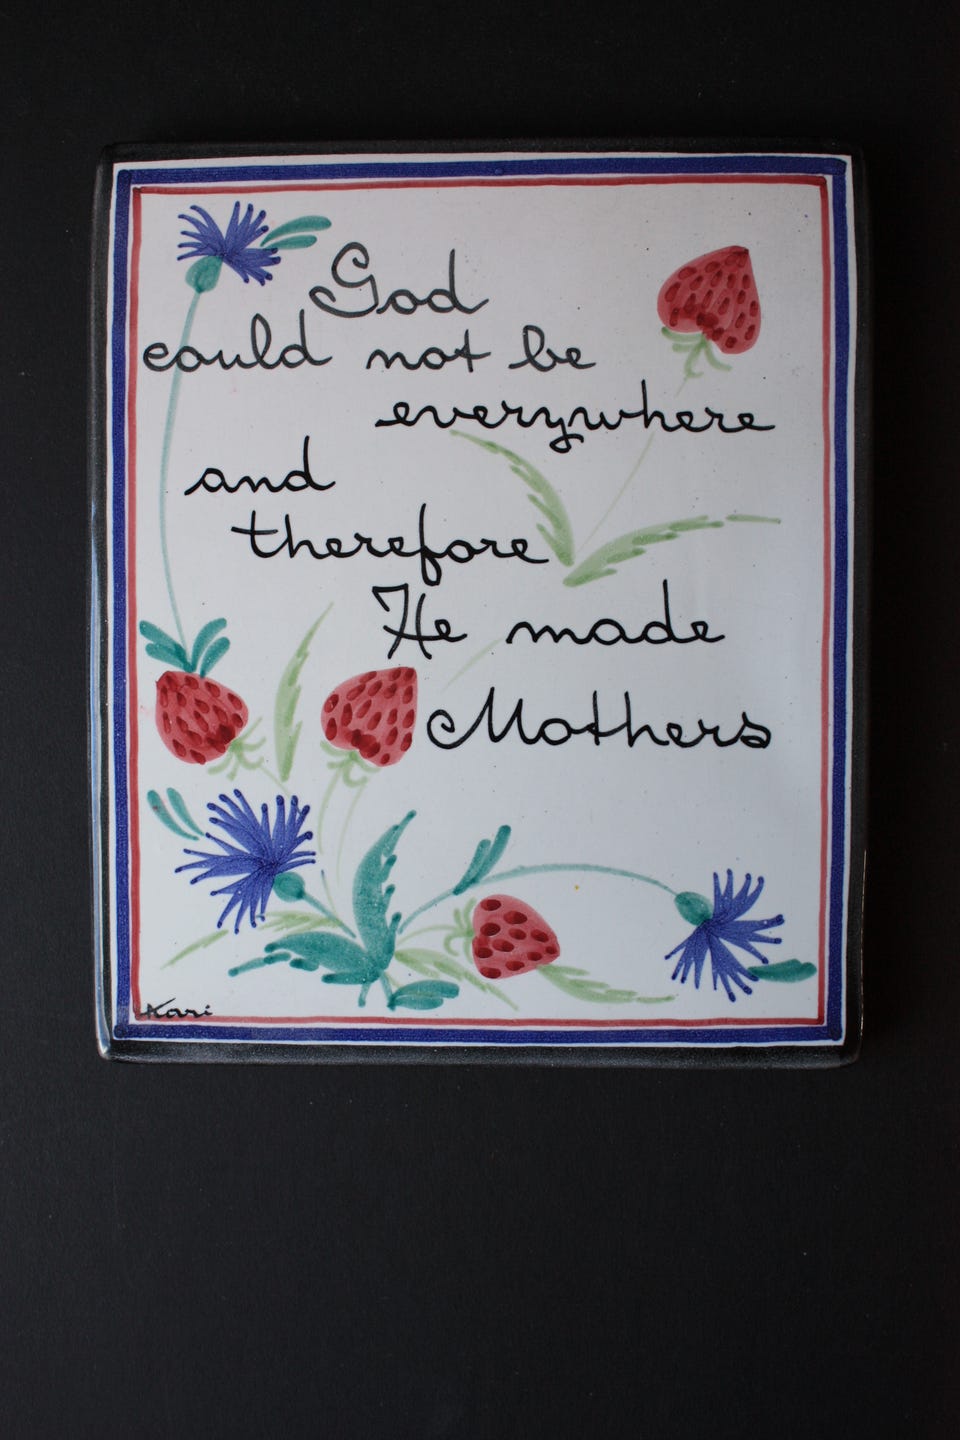 God
could not be
everywhere
and
therefore
He made
Mothers
Kari